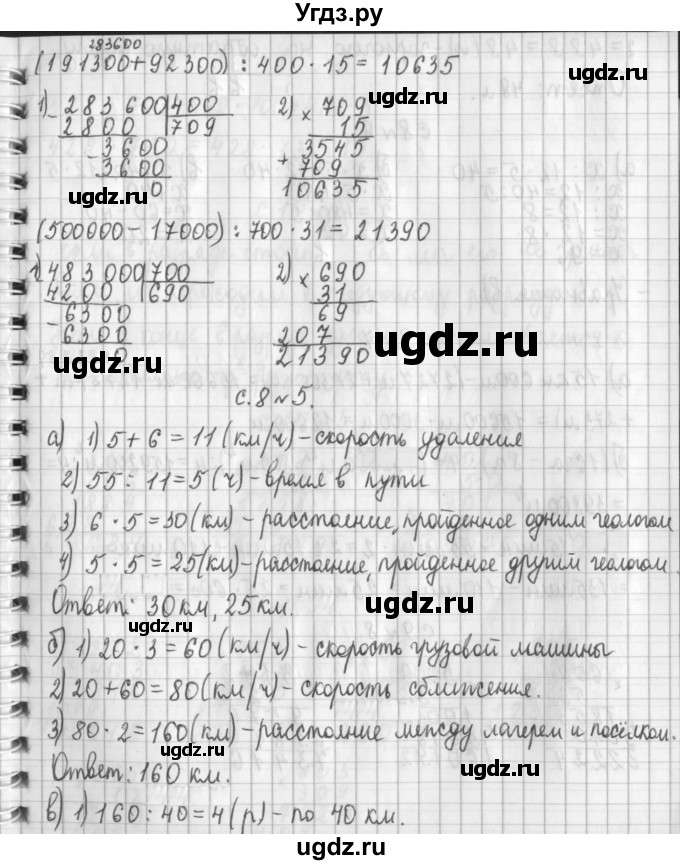 Угдз.ру
283600
(191300+92300) : 400 · 15 = 10635
1) - 283600 | 400
2800 | 709
- 3600
3600
0
2) × 709
15
3545
+ 709
10635
ugdz.ru
ugdz.ru
ugdz.ru
(500000 - 17000) : 700 · 31 = 21390
1) 483000 | 700
4200 | 690
- 6300
6300
0
2) × 690
31
69
207
21390
ugdz.ru
ugdz.ru
с. 8 №5.
а) 1) 5 + 6 = 11 (км/ч) - скорость удаления
2) 55 : 11 = 5 (ч) - время в пути
3) 6 · 5 = 30 (км) - расстояние, пройденное одним геологом
4) 5 · 5 = 25 (км) - расстояние, пройденное другим геологом.
Ответ: 30 км, 25 км.
ugdz.ru
ugdz.ru
б) 1) 20 · 3 = 60 (км/ч) - скорость грузовой машины
2) 20 + 60 = 80 (км/ч) - скорость сближения.
3) 80 · 2 = 160 (км) - расстояние между лагерем и посёлком.
ugdz.ru
ugdz.ru
Ответ: 160 км.
в) 1) 160 : 40 = 4 (р) - по 40 км.
ugdz.ru